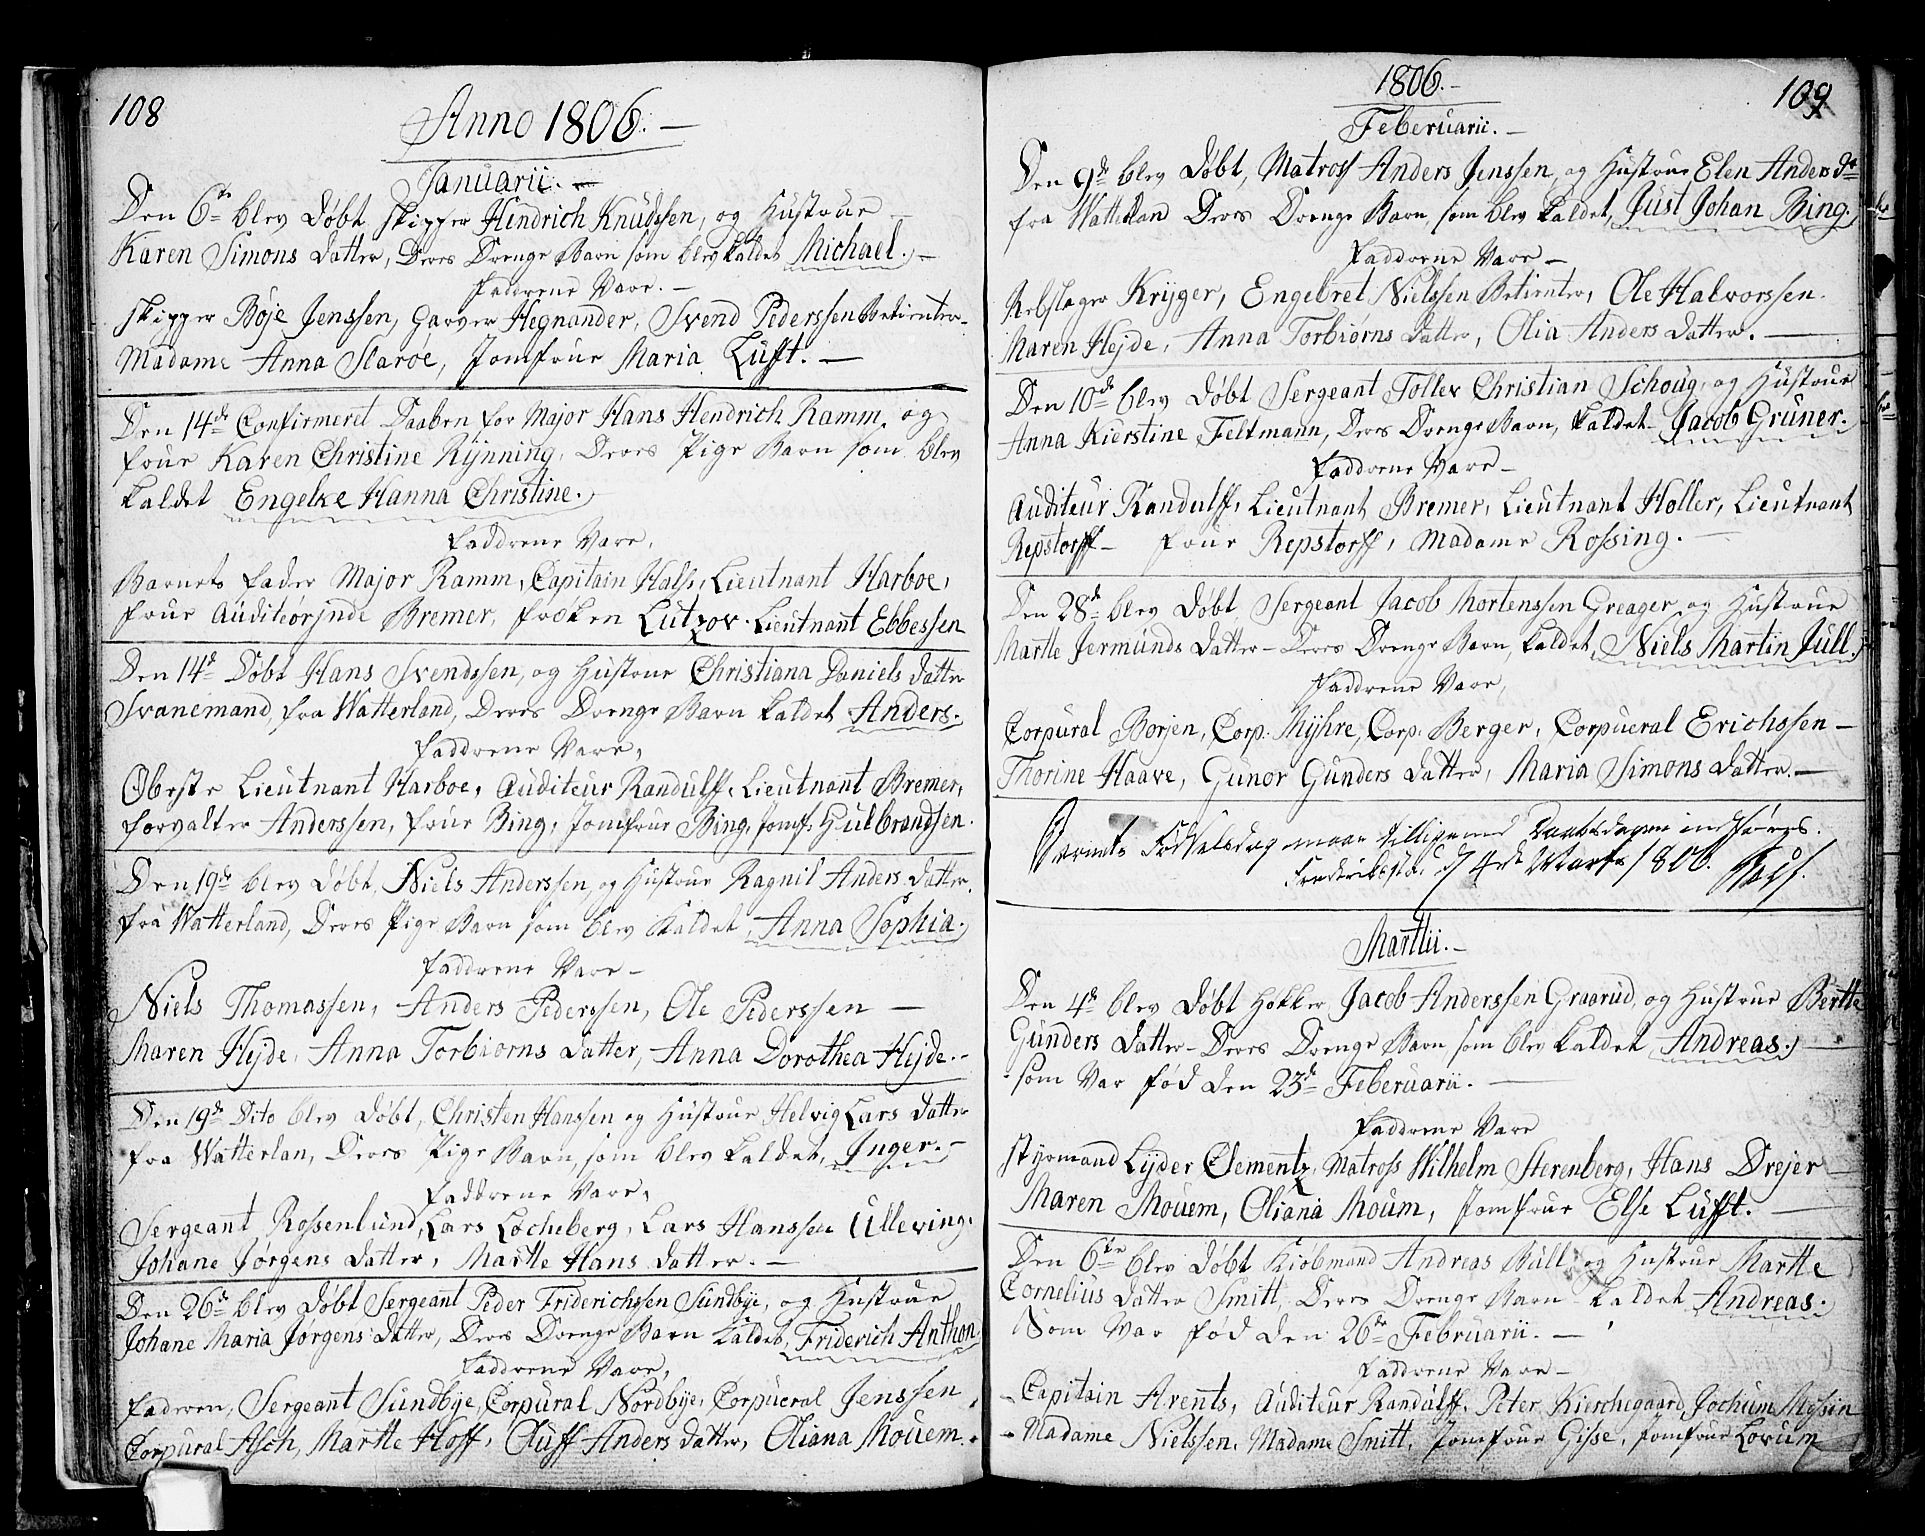 108
Anno 1806.
Januarii.
Den 6te blev Døbt Skipper Hindrich Knudssen, og Hustrue
Karen Simons Datter, Deres Drenge Barn som blev kaldet Michael.
Faddrene Vare.
Skipper Böje Jenssen, Garver Hegnander, Svend Pederssen Betienter
Madame Anna Slaröe, Jomfrue Maria Lufft.
Den 14de Confirmeret Daaben for Major Hans Hendrich Ramm, og
Frue Karen Christine Rÿnning, Deres Pige Barn som blev
kaldet Engelke Hanna Christine.
Faddrene Vare,
Barnets Fader Major Ramm, Capitain Hals, Lieutnant Harboe,
Frue Auditeörjnde Bremer, Frøken Lutzov. Lieutnant Ebbessen
Den 14de Døbt Hans Svendssen, og Hustrue Christiana Daniels Datter
Svanemand, fra Watterland, Deres Drenge Barn kaldet Anders.
Faddrene Vare,
Oberste Lieutnant Harboe, Auditeur Randulff, Lieutnant Bremer,
Forvalter Anderssen, Frue Bing, Jomfrue Bing, Jomf. Gulbrandsen.
Den 19de blev Døbt, Niels Anderssen, og Hustrue Ragnil Anders Datter
fra Watterland, Deres Pige Barn som blev kaldet, Anna Sophia.
Faddrene Vare
Niels Thomassen, Anders Pederssen, Ole Pederssen
Maren Hejde, Anna Torbiørns Datter, Anna Dorothea Hejde.
Den 19de Dito blev Døbt, Christen Hanssen og Hustrue Helvig Lars Datter
fra Watterlan, Deres Pige Barn, som blev kaldet, Inger.
Faddrene Vare,
Sergeant Rossenlund, Lars Locheberg, Lars Hanssen Ulleving,
Johane Jørgens Datter, Martte Hans Datter.
Den 26de blev Døbt Sergeant Peder Friderichssen Sundbÿe, og Hustrue
Johane Maria Jørgens Datter, Deres Drenge Barn kaldet, Friderich Anthon
Faddrene Vare,
Faderen, Sergeant Sundbÿe, Corpural Nordbÿe, Corpueral Jenssen
Corpural Asch, Martte Hoff, Oluff Anders Datter, Oliana Mouem.
1806.
109
Feberuarii.
Den 9de blev Døbt, Matross Anders Jenssen, og Hustrue Elen Anders Dr
fra Watterlan Deres Drenge Barn, som blev kaldet, Just Johan Bing.
Faddrene Vare
Rebslager Krÿger, Engebret Nielssen Betienter, Ole Halvorssen.
Maren Hejde, Anna Torbiørns Datter, Olia Anders Datter.
Den 10de blev Døbt Sergeant Tollev Christian Schoug, og Hustrue
Anna Kierstine Feltmann, Deres Drenge Barn, kaldet Jacob Grüner.
Faddrene Vare
Auditeur Randulff, Lieutnant Bremer, Lieutnant Holler, Lieutnant
Repstorff Frue Repstorff, Madame Rossing.
Den 28de blev Døbt, Sergeant Jacob Mortenssen Greager og Hustrue
Martte Jermunds Datter Deres Drenge Barn, kaldet, Niels Martin Jull.
Faddrene Vare,
Corpural Borjen, Corp. Mÿhre, Corp. Berger, Corpueral Erichssen
Thorine Haave, Gunor Gunders Datter, Maria Simons Datter.
Barnets Fødselsdag maae tilligemed Daabsdagen indføres.
Frederikstad d 4de Marts 1806.
Marttii.
Den 4de blev Døbt Høkker Jacob Anderssen Graarud, og Hustrue Bertte
Gunders Datter Deres Drenge Barn som blev kaldet, Andreas.
som Var fød Den 23de Feberuarii.
Faddrene Vare
Stÿrmand Lÿder Clementz, Matross Wilhelm Sterenberg, Hans Drejer
Maren Mouem, Oliana Moum, Jomfrue Else Lufft.
Den 6te blev Døbt Kiøbmand Andreas Büll og Hustrue Martte
Cornelius Datter Smitt, Deres Drenge Barn kaldet Andreas.
Som Var fød Den 26de Februarii.
Faddrene Vare
Capitain Arents, Auditeur Randulff, Peter Kierchegaard, Jochum Messin
Madame Nielssen, Madame Smitt, Jomfrue Gisse, Jomfrue Lorum